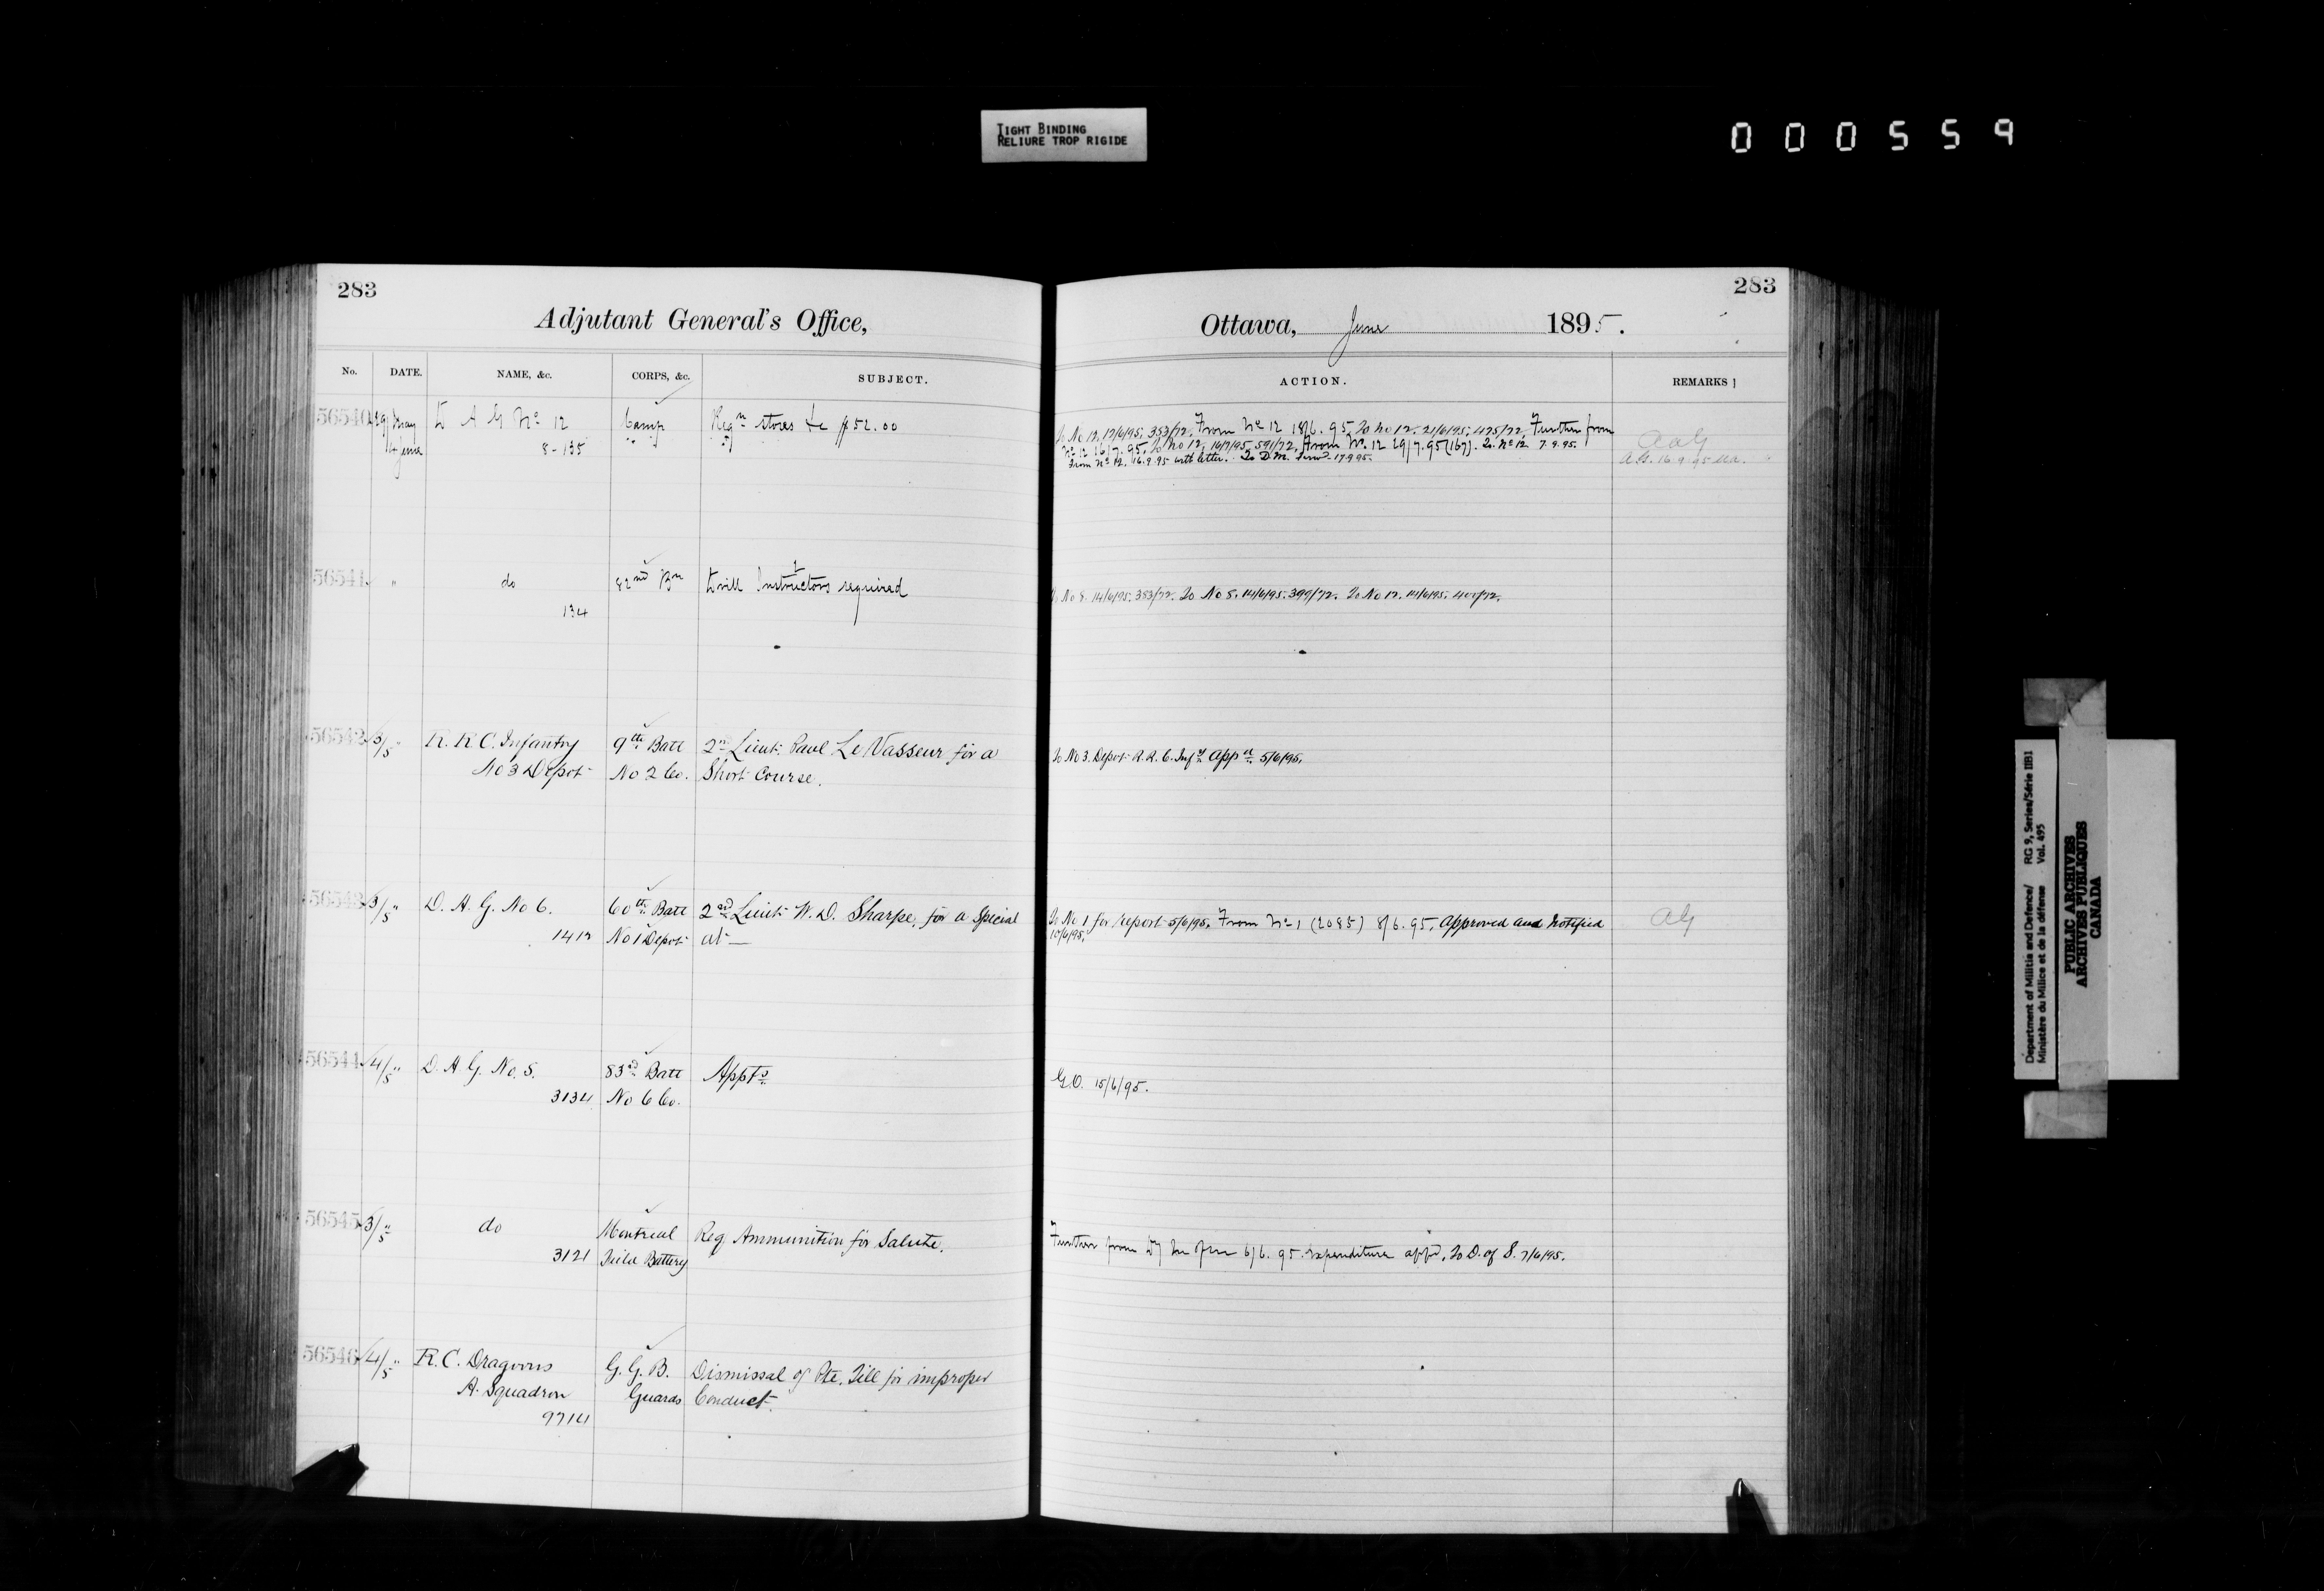 TIGHT BINDING
RELIURE TROP RIGIDE
000559
283
Adjutant General's Office,
No. DATE. NAME, &c. CORPS, &c. SUBJECT.
56540 29 May D A G No 12 Camp Regn stores &c $52.00
4 June 8-135
56541 " do 82nd Bn Drill Instructors required
134
56542 3/5 " R. R. C. Infantry 9th Batt 2nd Lieut. Paul Le Vasseur for a
No 3 Depot No 2 Co. Short Course.
56543 3/5 " D. A. G. No 6. 60th Batt 2nd Lieut. W. D. Sharpe, for a Special
No 1 Depot at —
56544 4/5 " D. A. G. No. 5. 83rd Batt Appts
3134 No 6 Co.
56545 3/5 " do Montreal Req. Ammunition for Salute.
3121 Field Battery
56546 4/5 " R. C. Dragoons G. G. B. Dismissal of Pte. Till for improper
A. Squadron Guards Conduct.
283
Ottawa, June 1895.
ACTION. REMARKS
To No 12, 12/6/95, 353/72. From No 12 18/6.95. To No 12. 21/6/95, 425/72. Further from
No 12 16/7.95. To No 12, 16/7/95, 591/72. From No. 12 29/7.95 (167). To No 12 7.9.95.
From No 12. 16.9.95 with letter. To D.M. 17.9.95.
AAG
A.G. 16.9.95
To No 8. 14/6/95. 383/72. To No 5. 14/6/95. 399/72. To No 12. 14/6/95.
To No 3. Depot R. R. C. Infy Appd 5/6/95.
To No 1 for report 5/6/95. From No 1 (2085) 8/6.95. Approved and Notified
10/6/95. AG
G.O. 15/6/95.
Further from 6/6.95. Expenditure appd. To D. of S. 7/6/95.
Department of Militia and Defence/ RG 9, Series/Série IIB1
Ministère du Milice et de la défense Vol. 495
PUBLIC ARCHIVES
ARCHIVES PUBLIQUES
CANADA